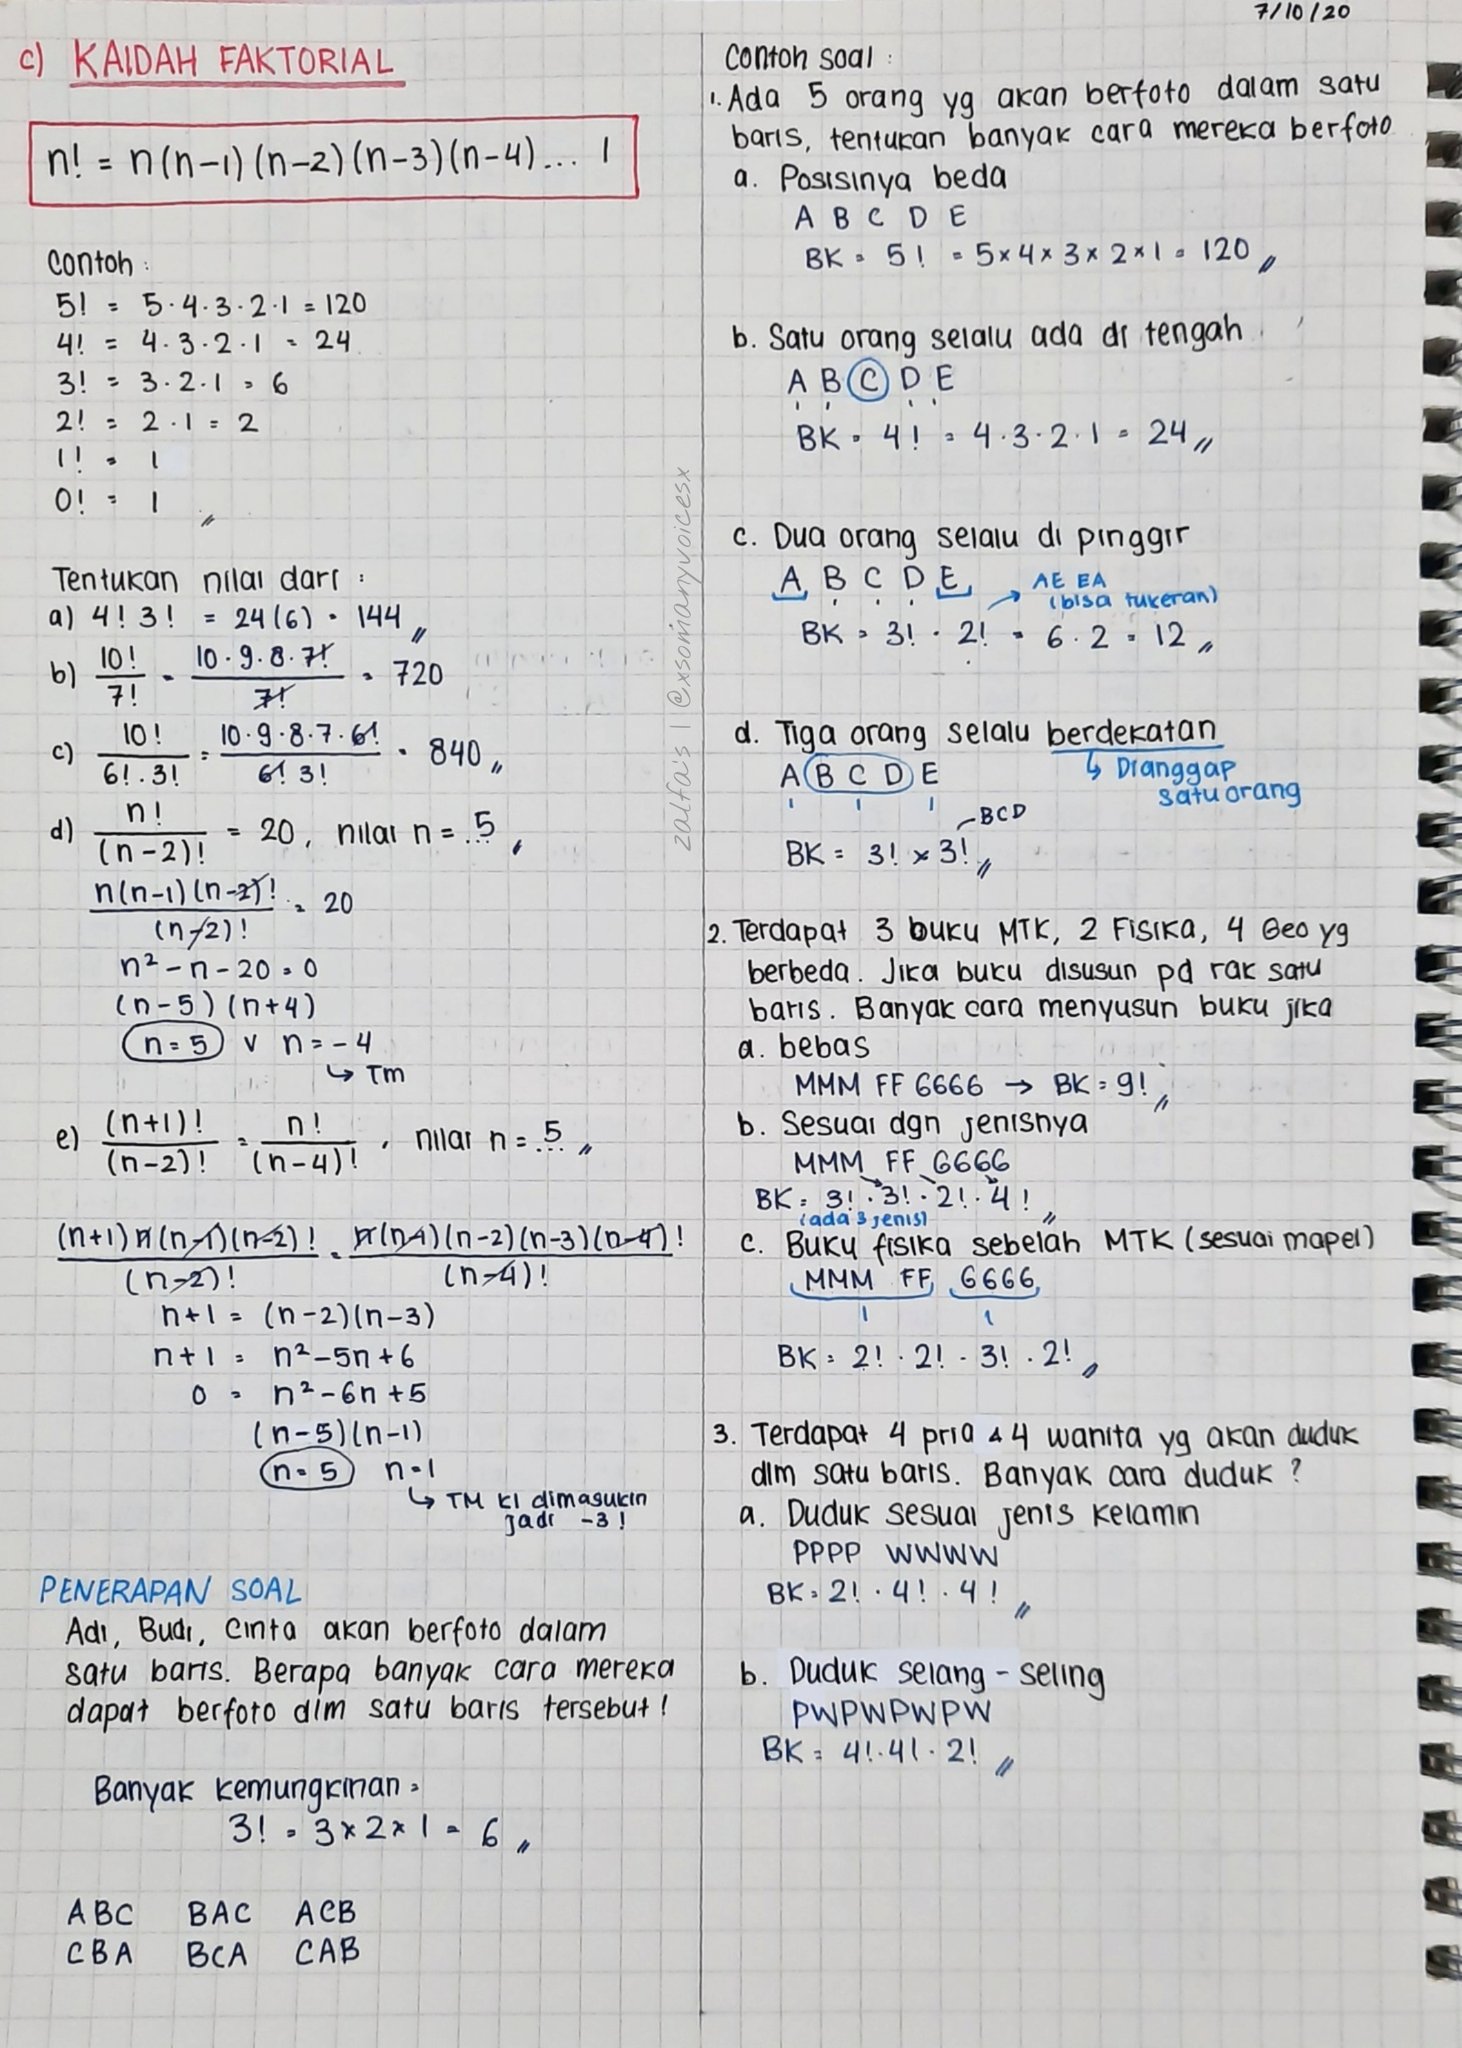 7/10/20
c) KAIDAH FAKTORIAL
n! = n(n-1)(n-2)(n-3)(n-4)... 1
Contoh :
5! = 5·4·3·2·1 = 120
4! = 4·3·2·1 = 24
3! = 3·2·1 = 6
2! = 2·1 = 2
1! = 1
0! = 1 //
Tentukan nilai dari :
a) 4! 3! = 24(6) = 144 //
b) 10!/7! = 10·9·8·7!/7! = 720
c) 10!/6!.3! = 10·9·8·7·6!/6! 3! = 840 //
d) n!/(n-2)! = 20, nilai n = ...5 //
n(n-1)(n-2)!/(n-2)! = 20
n² - n - 20 = 0
(n-5)(n+4)
n = 5 v n = -4
↳ TM
e) (n+1)!/(n-2)! = n!/(n-4)!, nilai n = ...5 //
(n+1)n(n-1)(n-2)!/(n-2)! = n(n-1)(n-2)(n-3)(n-4)!/(n-4)!
n+1 = (n-2)(n-3)
n+1 = n²-5n+6
0 = n²-6n+5
(n-5)(n-1)
n = 5 n = 1
↳ TM kl dimasukin
jadi -3!
PENERAPAN SOAL
Adi, Budi, Cinta akan berfoto dalam
satu baris. Berapa banyak cara mereka
dapat berfoto dlm satu baris tersebut!
Banyak kemungkinan =
3! = 3×2×1 = 6 //
ABC BAC ACB
CBA BCA CAB
Contoh soal :
1. Ada 5 orang yg akan berfoto dalam satu
baris, tentukan banyak cara mereka berfoto
a. Posisinya beda
A B C D E
BK = 5! = 5×4×3×2×1 = 120 //
b. Satu orang selalu ada di tengah
A B C D E
BK = 4! = 4·3·2·1 = 24 //
c. Dua orang selalu di pinggir
A B C D E → AE EA
(bisa tukeran)
BK = 3! · 2! = 6·2 = 12 //
d. Tiga orang selalu berdekatan
↳ Dianggap
satu orang
A B C D E
BCD
BK = 3! × 3! //
2. Terdapat 3 buku MTK, 2 Fisika, 4 Geo yg
berbeda. Jika buku disusun pd rak satu
baris. Banyak cara menyusun buku jika
a. bebas
MMM FF GGGG → BK = 9! //
b. Sesuai dgn jenisnya
MMM FF GGGG
BK = 3! · 3! · 2! · 4! //
(ada 3 jenis)
c. Buku fisika sebelah MTK (sesuai mapel)
MMM FF GGGG
1 1
BK = 2! · 2! · 3! · 2! //
3. Terdapat 4 pria & 4 wanita yg akan duduk
dlm satu baris. Banyak cara duduk ?
a. Duduk sesuai jenis kelamin
PPPP WWWW
BK = 2! · 4! · 4! //
b. Duduk selang-seling
PWPWPWPW
BK = 4!·4!·2! //
zalfa's | @xsomanyvoicesx